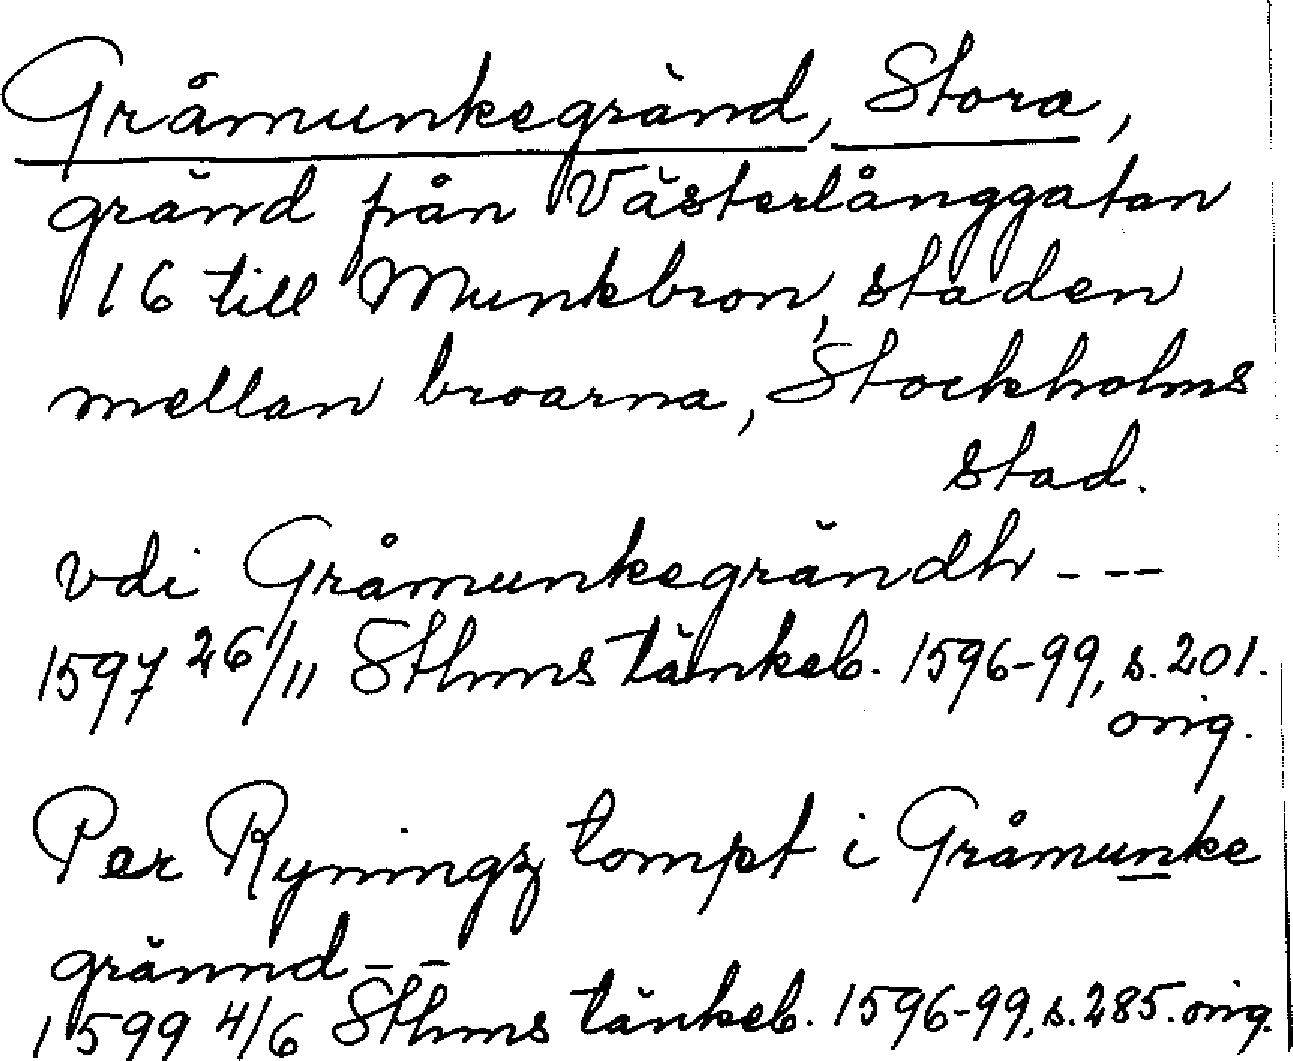 Gråmunkegränd, Stora,
gränd från Västerlånggatan
16 till Munkbron, staden
mellan broarna, Stockholms
stad.
vdi Gråmunkegrändh - - -
1597 26/11 Sthms tänkeb. 1596-99, s. 201.
orig.
Per Ryningz tompt i Gråmunke
grännd - -
1599 4/6 Sthms tänkeb. 1596-99, s. 285. orig.